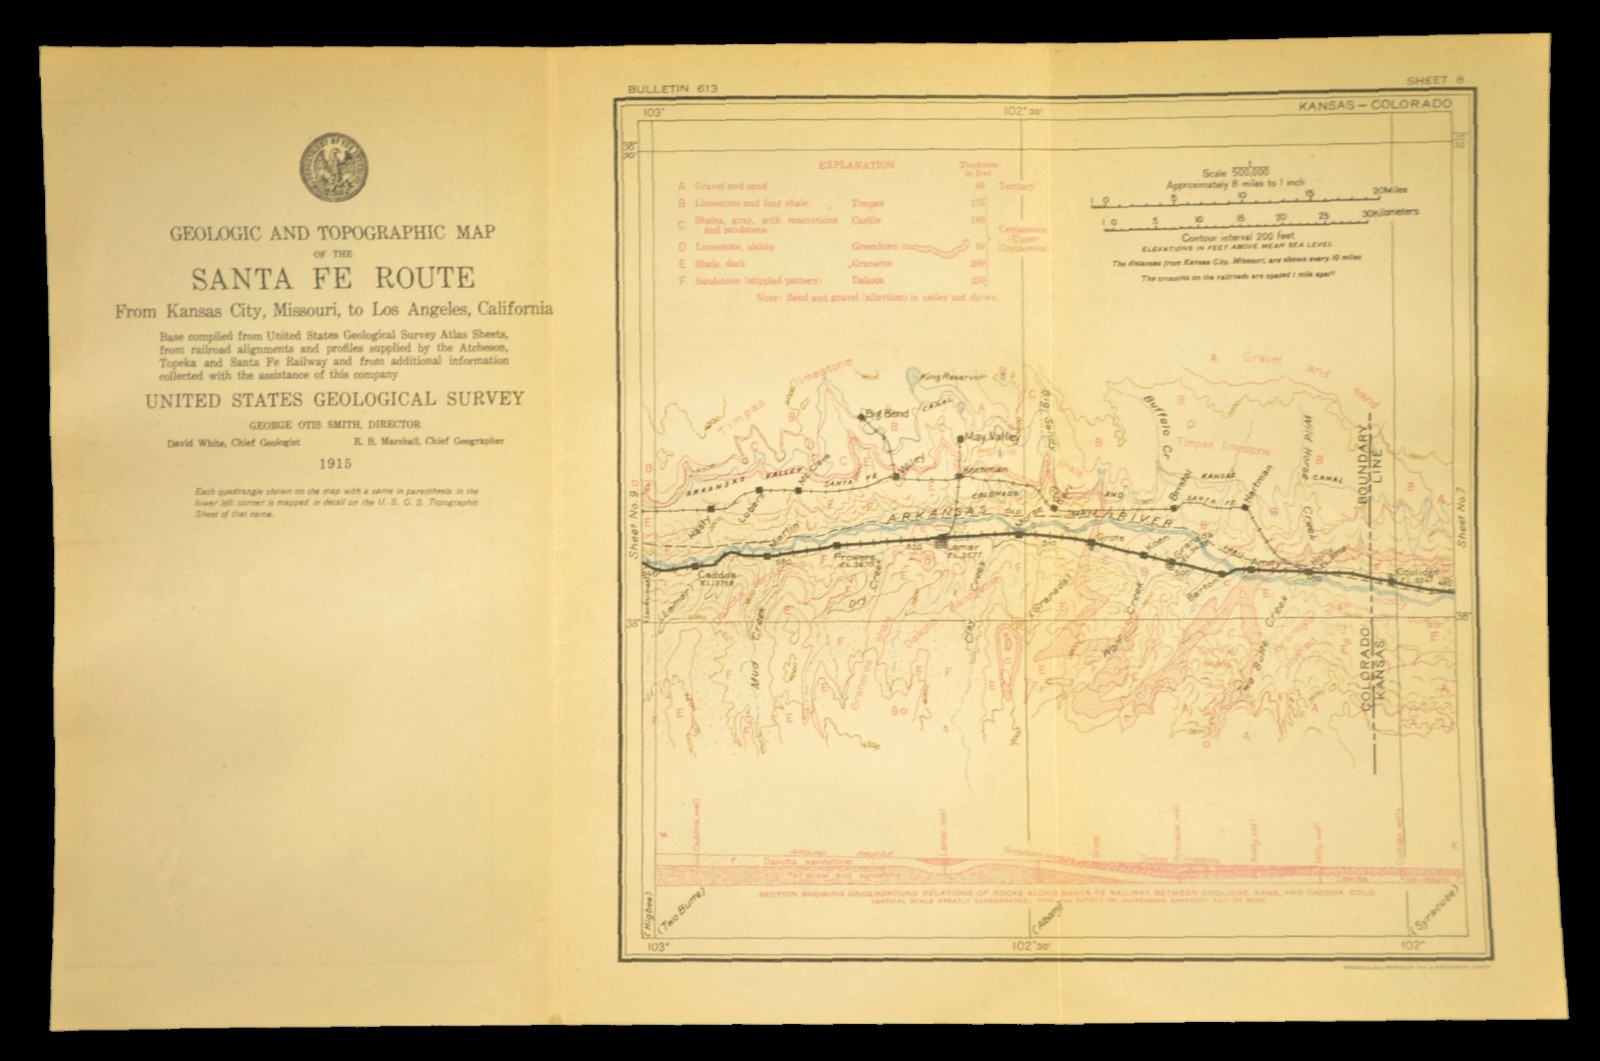 GEOLOGIC AND TOPOGRAPHIC MAP
OF THE
SANTA FE ROUTE
From Kansas City, Missouri, to Los Angeles, California
Base compiled from United States Geological Survey Atlas Sheets,
from railroad alignments and profiles supplied by the Atcheson,
Topeka and Santa Fe Railway and from additional information
collected with the assistance of this company
UNITED STATES GEOLOGICAL SURVEY
GEORGE OTIS SMITH, DIRECTOR
David White, Chief Geologist R. B. Marshall, Chief Geographer
1915
Each quadrangle shown on the map with a name in parenthesis in the
lower left corner is mapped in detail on the U. S. G. S. Topographic
Sheet of that name.
BULLETIN 613
SHEET 8
KANSAS – COLORADO
103°
102°30'
38°
30'
EXPLANATION
Thickness
in feet
A Gravel and sand 40 Tertiary
B Limestone and limy shale Timpas 175
C Shales, gray, with concretions
and sandstone Carlile 180
D Limestone, slabby Greenhorn 50
E Shale, dark Graneros 200
F Sandstone (stippled pattern) Dakota
Cretaceous
(Upper
Cretaceous)
Note: Sand and gravel (alluvium) in valley not shown.
Scale 1/500,000
Approximately 8 miles to 1 inch
1 0 5 10 15 20 Miles
1 0 5 10 15 20 25 30 Kilometers
Contour interval 200 feet
ELEVATIONS IN FEET ABOVE MEAN SEA LEVEL
The distances from Kansas City, Missouri, are shown every 10 miles
The crossties on the railroads are spaced 1 mile apart
A Gravel and sand
Timpas limestone
King Reservoir
Big Bend
CANAL
May Valley
Big Sandy
Buffalo Cr
Timpas limestone
Wild Horse Creek
BOUNDARY LINE
KANSAS
CANAL
ARKANSAS VALLEY
SANTA FE
Mc Cave
Wiley
Kornman
COLORADO AND
Bristol
SANTA FE
Hartman
Hasty
Lubers
ARKANSAS RIVER
OLD SANTA FE TRAIL
Sheet No. 9
Sheet No. 7
Martin
Prowers
Lamar
EL.3577
Grote
Koen
Granada
Barton
Holly
Coolidge
Caddoa
EL.3758
(Lamar)
(Granada)
Mud Creek
Dry Creek
Clay Creek
Wolf Creek
Two Butte Creek
38°
38°
COLORADO
KANSAS
W.
Caddoa well
Lamar well
Grote
Granada well
Holly well
Coolidge wells
Dakota sandstone
Red shale and sandstone
SECTION SHOWING UNDERGROUND RELATIONS OF ROCKS ALONG SANTA FE RAILWAY BETWEEN COOLIDGE, KANS., AND CADDOA, COLO.
VERTICAL SCALE GREATLY EXAGGERATED, THIS HAS EFFECT OF INCREASING APPARENT TILT OF BEDS
(Higbee)
(Two Butte)
(Albany)
(Syracuse)
103°
102°30'
102°